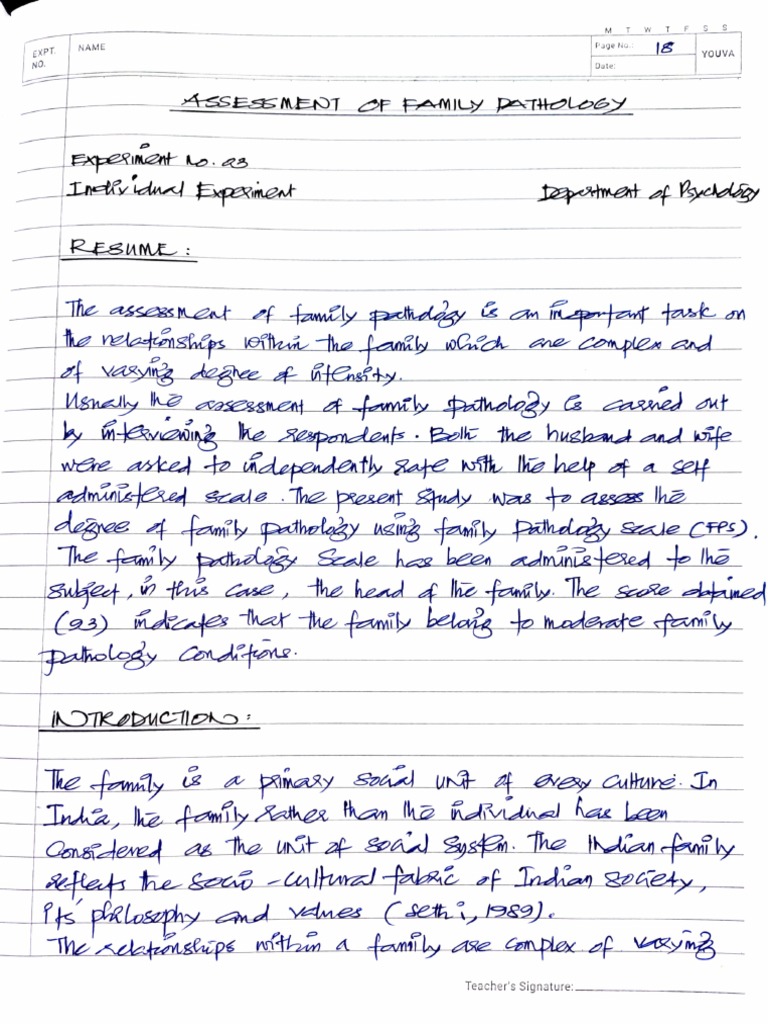 M T W T F S S
EXPT. NO.
NAME
Page No.: 18
Date:
YOUVA
ASSESSMENT OF FAMILY PATHOLOGY
Experiment No. 03
Individual Experiment
Department of Psychology
RESUME :
The assessment of family pathology is an important task on
the relationships within the family which are complex and
of varying degree of intensity.
Usually the assessment of family pathology is carried out
by interviewing the respondents. Both the husband and wife
were asked to independently rate with the help of a self
administered scale. The present study was to assess the
degree of family pathology using family pathology scale (FPS).
The family pathology Scale has been administered to the
subject, in this case, the head of the family. The score obtained
(93) indicates that the family belong to moderate family
pathology conditions.
INTRODUCTION :
The family is a primary social unit of every culture. In
India, the family rather than the individual has been
Considered as the unit of social system. The Indian family
reflects the socio-cultural fabric of Indian society,
its philosophy and values (Sethi, 1989).
The relationships within a family are complex of varying
Teacher's Signature: